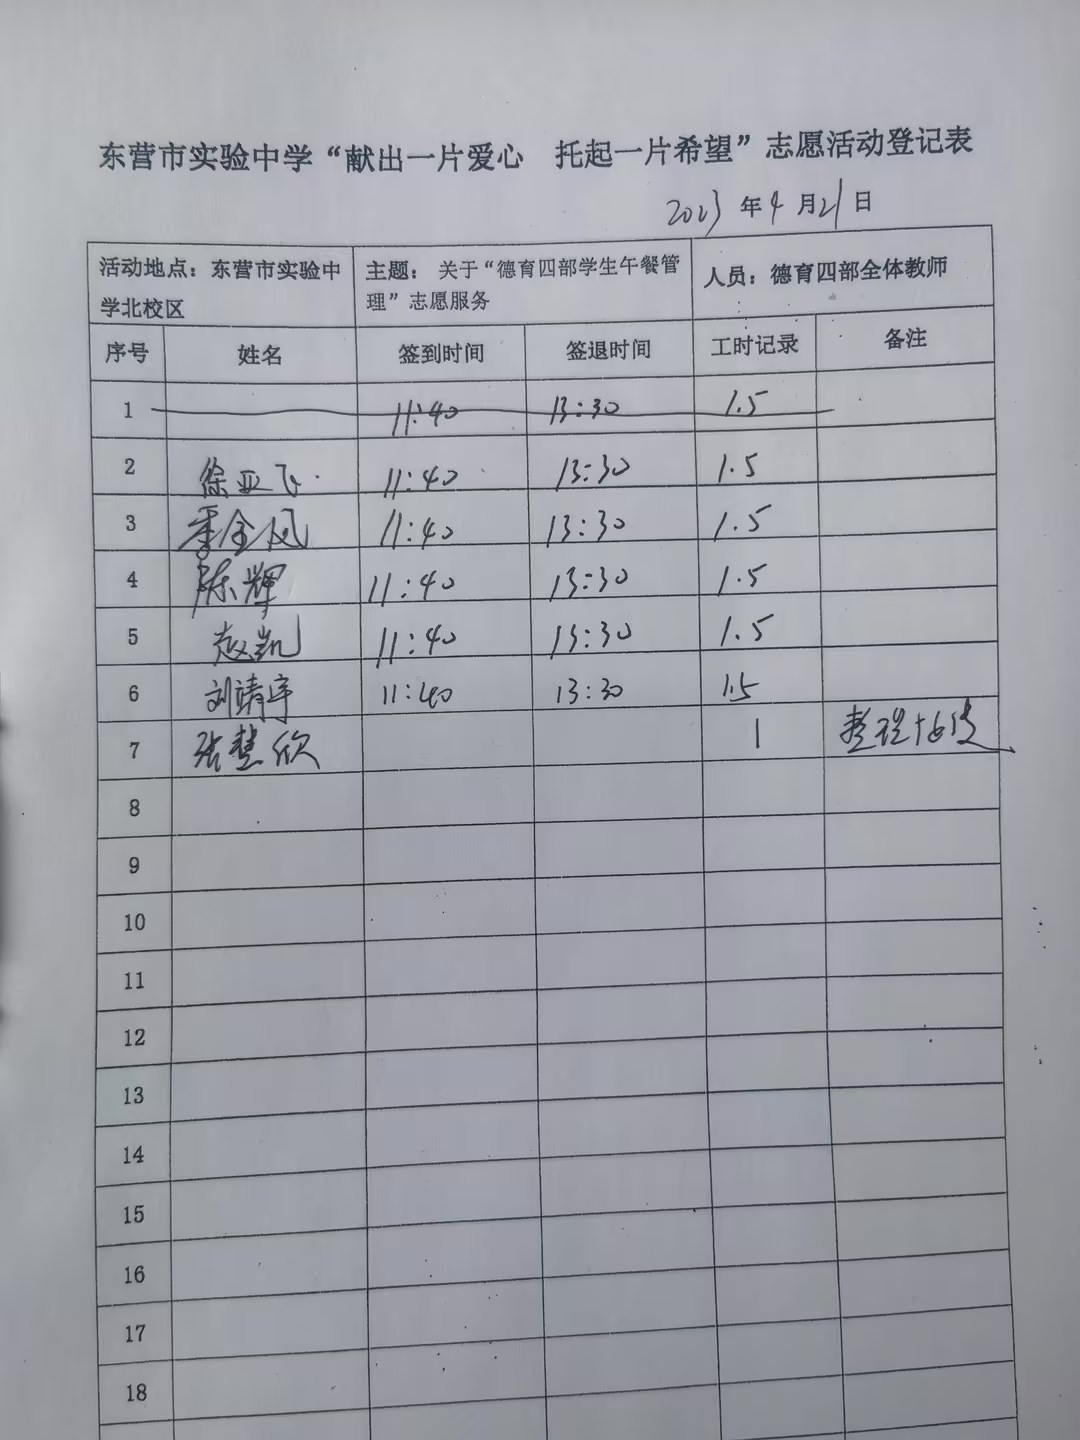 东营市实验中学“献出一片爱心 托起一片希望”志愿活动登记表
2023 年 4 月 21 日
活动地点：东营市实验中学北校区 主题：关于“德育四部学生午餐管理”志愿服务 人员：德育四部全体教师
序号 姓名 签到时间 签退时间 工时记录 备注
1 11:40 13:30 1.5
2 徐亚飞 11:40 13:30 1.5
3 季金凤 11:40 13:30 1.5
4 陈辉 11:40 13:30 1.5
5 赵凯 11:40 13:30 1.5
6 刘靖宇 11:40 13:30 1.5
7 张慧欣 1 整理
8
9
10
11
12
13
14
15
16
17
18